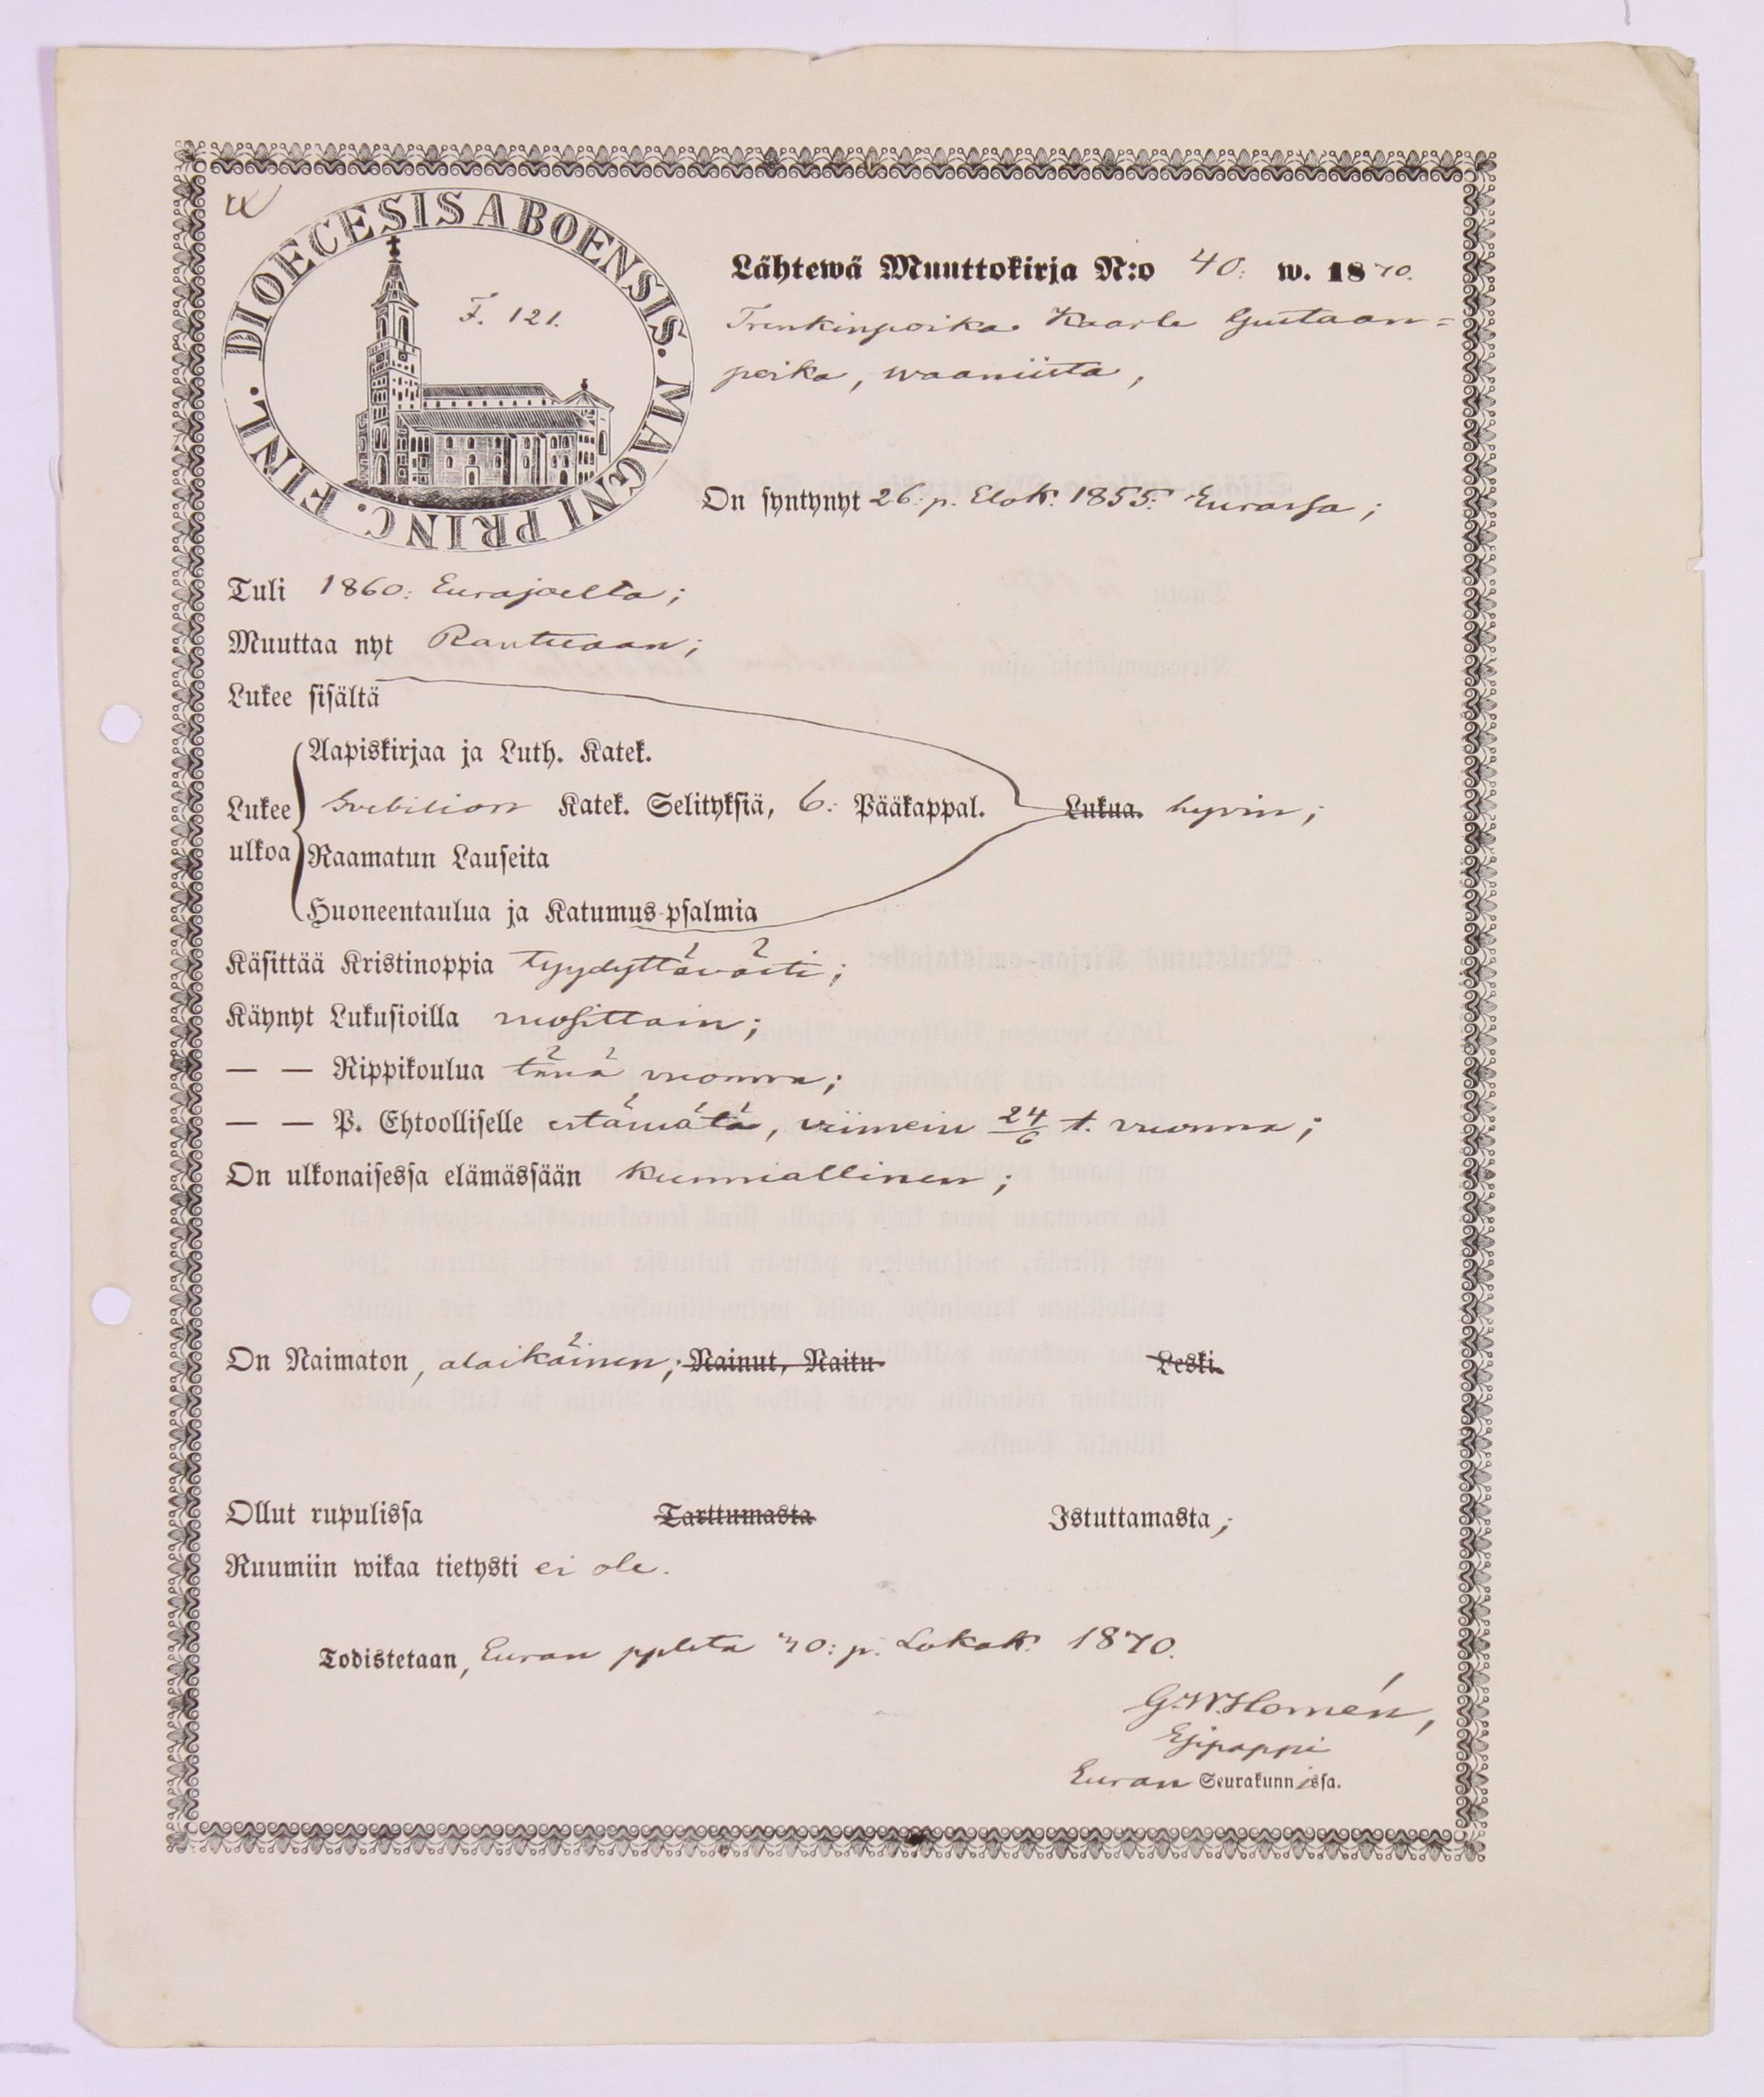 DIOECESIS ABOENSIS. MAGNI PRINC. FINL.
F. 121.
Lähtewä Muuttokirja N:o 40: w. 1870.
Trenkinpoika Kaarle Gustaan=
poika, waaniista,
On syntynyt 26: p. Elok. 1855: Eurassa;
Tuli 1860: Eurajoelta;
Muuttaa nyt Rantuaan;
Lukee sisältä
Aapiskirjaa ja Luth. Katek.
Lukee Svebilion Katek. Selityksiä, 6: Pääkappal. Lukua. hyvin;
ulkoa Raamatun Lauseita
Huoneentaulua ja Katumus-psalmia
Käsittää Kristinoppia tyydyttäväiti;
Käynyt Lukusioilla vuosittain;
— — Rippikoulua tänä vuonna;
— — P. Ehtoolliselle estämätä, viimein 24/6 t. vuonna;
On ulkonaisessa elämässään kunniallinen;
On Naimaton, alaikäinen; Nainut, Naitu Leski.
Ollut rupulissa Tarttumasta Istuttamasta;
Ruumiin wikaa tietysti ei ole.
Todistetaan, Euran ppleta 30: p. Lokak. 1870.
G. W. Homén,
Esipappi
Euran Seurakunnissa.